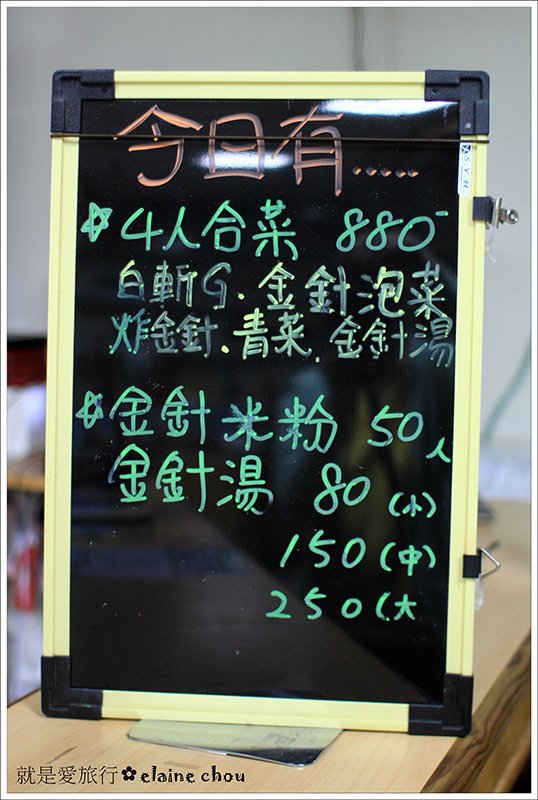 今日有.....
S.Y.H.
☆ 4人合菜 880-
白斬G.金針泡菜
炸金針.青菜.金針湯
☆ 金針米粉 50人
金針湯 80(小)
150(中)
250(大
就是愛旅行✿elaine chou